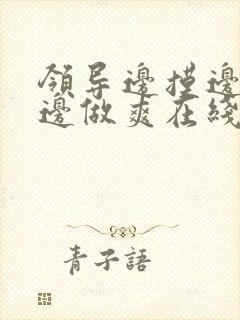 領导邊摸邊
邊做爽在綫
青子語